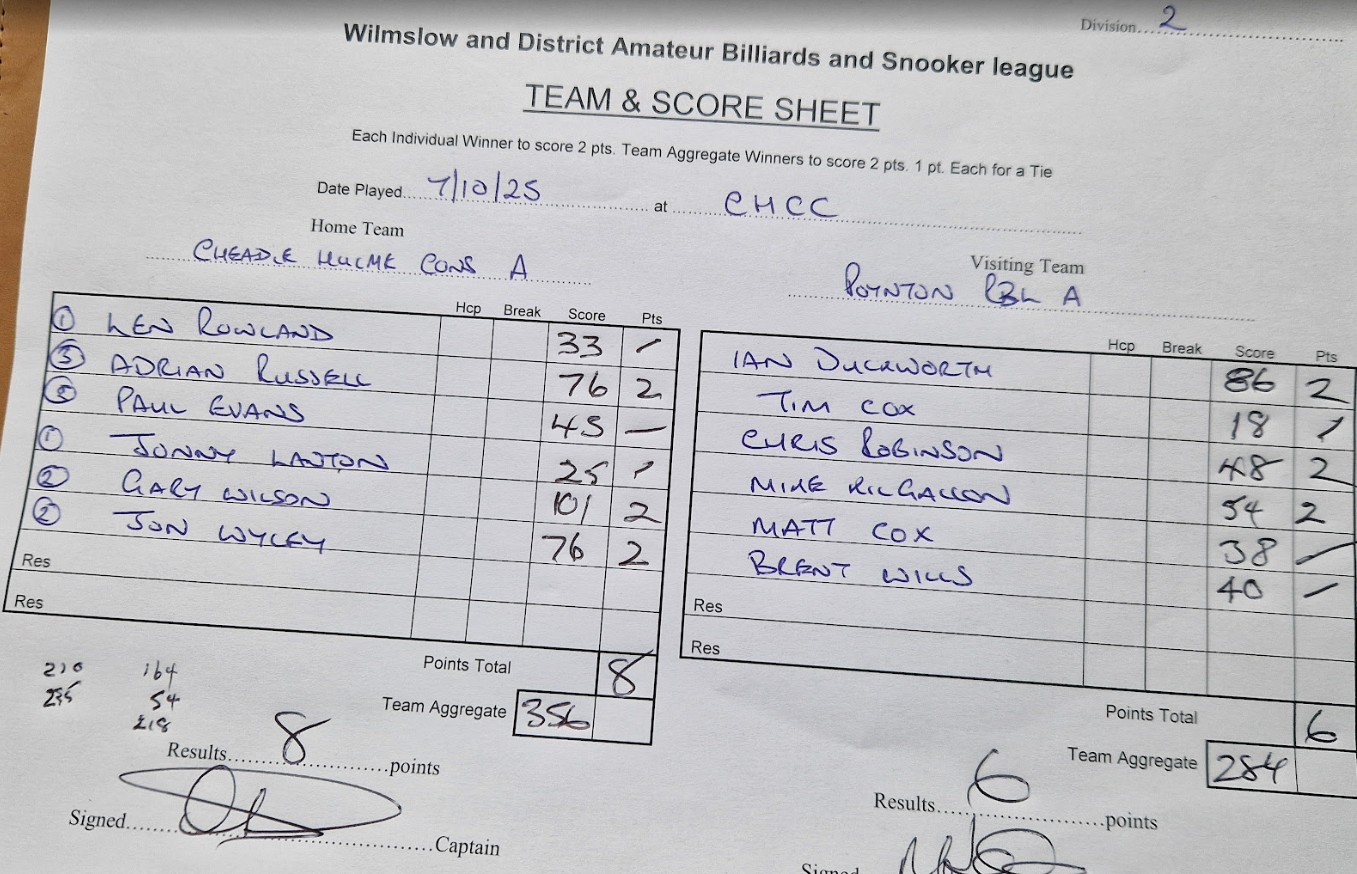 Division.... 2
Wilmslow and District Amateur Billiards and Snooker league
TEAM & SCORE SHEET
Each Individual Winner to score 2 pts. Team Aggregate Winners to score 2 pts. 1 pt. Each for a Tie
Date Played... 7/10/25 at CHCC
Home Team
CHEADLE HULME CONS A
Visiting Team
POYNTON RBL A
Hcp Break Score Pts
① LEN ROWLAND 33 /
③ ADRIAN RUSSELL 76 2
③ PAUL EVANS 45 —
① JONNY LAWTON 25 /
② GARY WILSON 101 2
② JON WYLEY 76 2
Res
Res
Points Total 8
Team Aggregate 356
210 164
235 54
218
Results... 8 ...points
Signed... ...Captain
Hcp Break Score Pts
IAN DUCKWORTH 86 2
TIM COX 18 /
CHRIS ROBINSON 48 2
MIKE KILGALLON 54 2
MATT COX 38 —
BRENT WILLS 40 —
Res
Res
Points Total 6
Team Aggregate 284
Results... 6 ...points
Signed